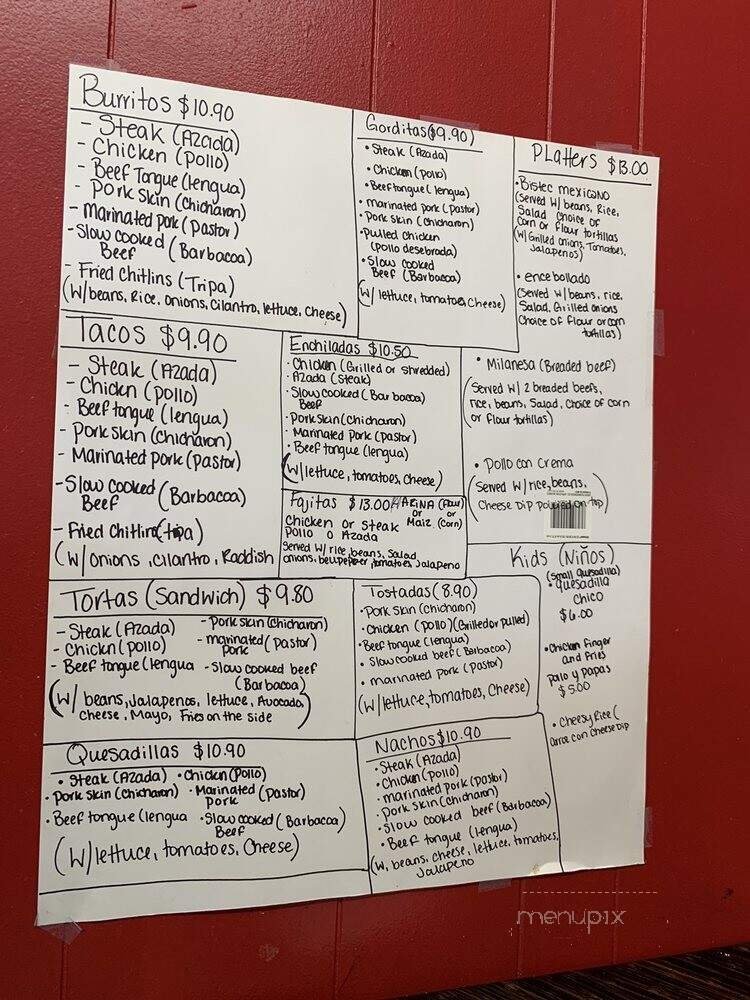 Burritos $10.90
- Steak (Azada)
- Chicken (pollo)
- Beef Tongue (lengua)
- Pork Skin (chicharon)
- Marinated pork (pastor)
- Slow cooked (Barbacoa)
Beef
- Fried Chitlins (Tripa)
(W/beans, Rice, onions, cilantro, lettuce, Cheese)
Gorditas ($9.90)
• Steak (Azada)
• Chicken (pollo)
• Beef tongue (lengua)
• marinated pork (pastor)
• Pork Skin (chicharon)
• Pulled Chicken
(pollo desebrada)
• Slow cooked
Beef (Barbacoa)
(W/ lettuce, tomatoes, Cheese)
Platters $13.00
• Bistec mexicano
(Served w/ beans, Rice,
Salad choice of
Corn or Flour tortillas
(W/Grilled onions, Tomatoes,
Jalapenos)
• encebollado
(Served w/ beans, rice,
Salad, Grilled onions
Choice of flour or corn
tortillas)
• Milanesa (Breaded beef)
(Served w/ 2 breaded beefs,
rice, beans, Salad, Choice of corn
or flour tortillas)
• Pollo con Crema
(Served w/ rice, beans,
Cheese Dip poured on top)
Tacos $9.90
- Steak (Azada)
- Chickn (pollo)
- Beef tongue (lengua)
- Pork skin (chicharon)
- Marinated pork (pastor)
- Slow cooked (Barbacoa)
Beef
- Fried Chitlin (tripa)
(W/onions, cilantro, Raddish
Enchiladas $10.50
• Chicken (Grilled or shredded)
• Azada (steak)
• Slow cooked (Barbacoa)
Beef
• Pork skin (chicharon)
• Marinated Pork (pastor)
• Beef tongue (lengua)
(W/lettuce, tomatoes, cheese)
Fajitas $13.00 HARINA (Flour)
or or
Maiz (corn)
Chicken or Steak
Pollo o Azada
Served w/ rice, beans, Salad,
onions, bellpepper, tomatoes, Jalapeno
Kids (Niños)
(Small Quesadilla)
• Quesadilla
Chico
$6.00
• Chicken Finger
and Fries
pollo y papas
$5.00
• Cheesy Rice (
arroz con Cheese Dip
Tortas (Sandwich) $9.80
- Steak (Azada)
- Chickn (pollo)
- Beef tongue (lengua
- Pork skin (chicharon)
- marinated (pastor)
pork
- Slow cooked beef
(Barbacoa)
(W/ beans, Jalapenos, lettuce, Avocado,
Cheese, Mayo, Fries on the side
Tostadas (8.90)
• Pork Skin (chicharon)
• Chicken (pollo) (Grilled or pulled)
• Beef tongue (lengua)
• Slow cooked beef (Barbacoa)
• marinated pork (pastor)
(W/lettuce, tomatoes, Cheese)
Quesadillas $10.90
• Steak (Azada) • Chicken (Pollo)
• Pork skin (chicharron) • Marinated (pastor)
pork
• Beef tongue (lengua • Slow cooked (Barbacoa)
Beef
(W/lettuce, tomatoes, Cheese)
Nachos $10.90
• Steak (Azada)
• Chicken (pollo)
• marinated pork (pastor)
• pork skin (chicharon)
• Slow cooked beef (Barbacoa)
• Beef tongue (lengua)
(W, beans, cheese, lettuce, tomatoes,
Jalapeno
menupix